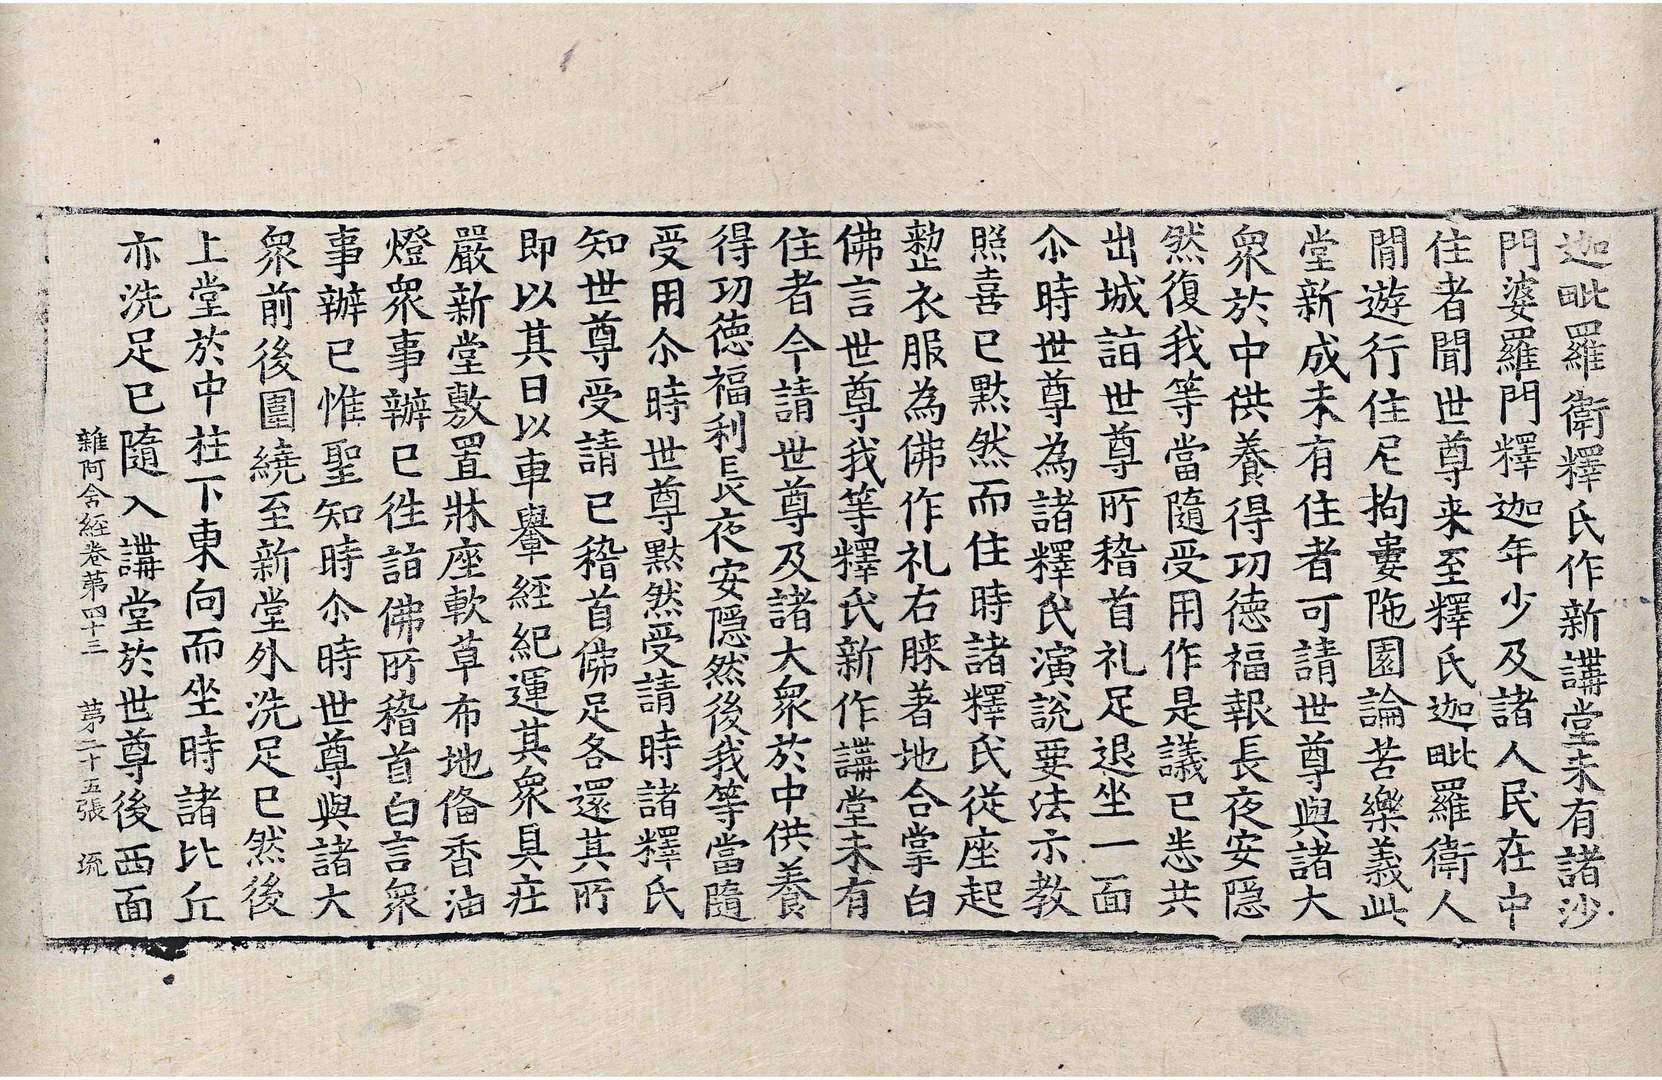 迦毗羅衛釋氏作新講堂未有諸沙
門婆羅門釋迦年少及諸人民在中
住者聞世尊来至釋氏迦毗羅衛人
間遊行住尼拘婁陁園論苦樂義此
堂新成未有住者可請世尊與諸大
衆於中供養得功德福報長夜安隱
然復我等當隨受用作是議已悉共
出城詣世尊所稽首礼足退坐一面
尒時世尊為諸釋氏演說要法示教
照喜已默然而住時諸釋氏從座起
整衣服為佛作礼右膝著地合掌白
佛言世尊我等釋氏新作講堂未有
住者今請世尊及諸大衆於中供養
得功德福利長夜安隱然後我等當隨
受用尒時世尊默然受請時諸釋氏
知世尊受請已稽首佛足各還其所
即以其日以車轝經紀運其衆具莊
嚴新堂敷置牀座軟草布地俻香油
燈衆事辦已徃詣佛所稽首白言衆
事辦已惟聖知時尒時世尊與諸大
衆前後圍繞至新堂外洗足已然後
上堂於中柱下東向而坐時諸比丘
亦洗足已隨入講堂於世尊後西面
雜阿含經卷第四十三　第二十五張　流